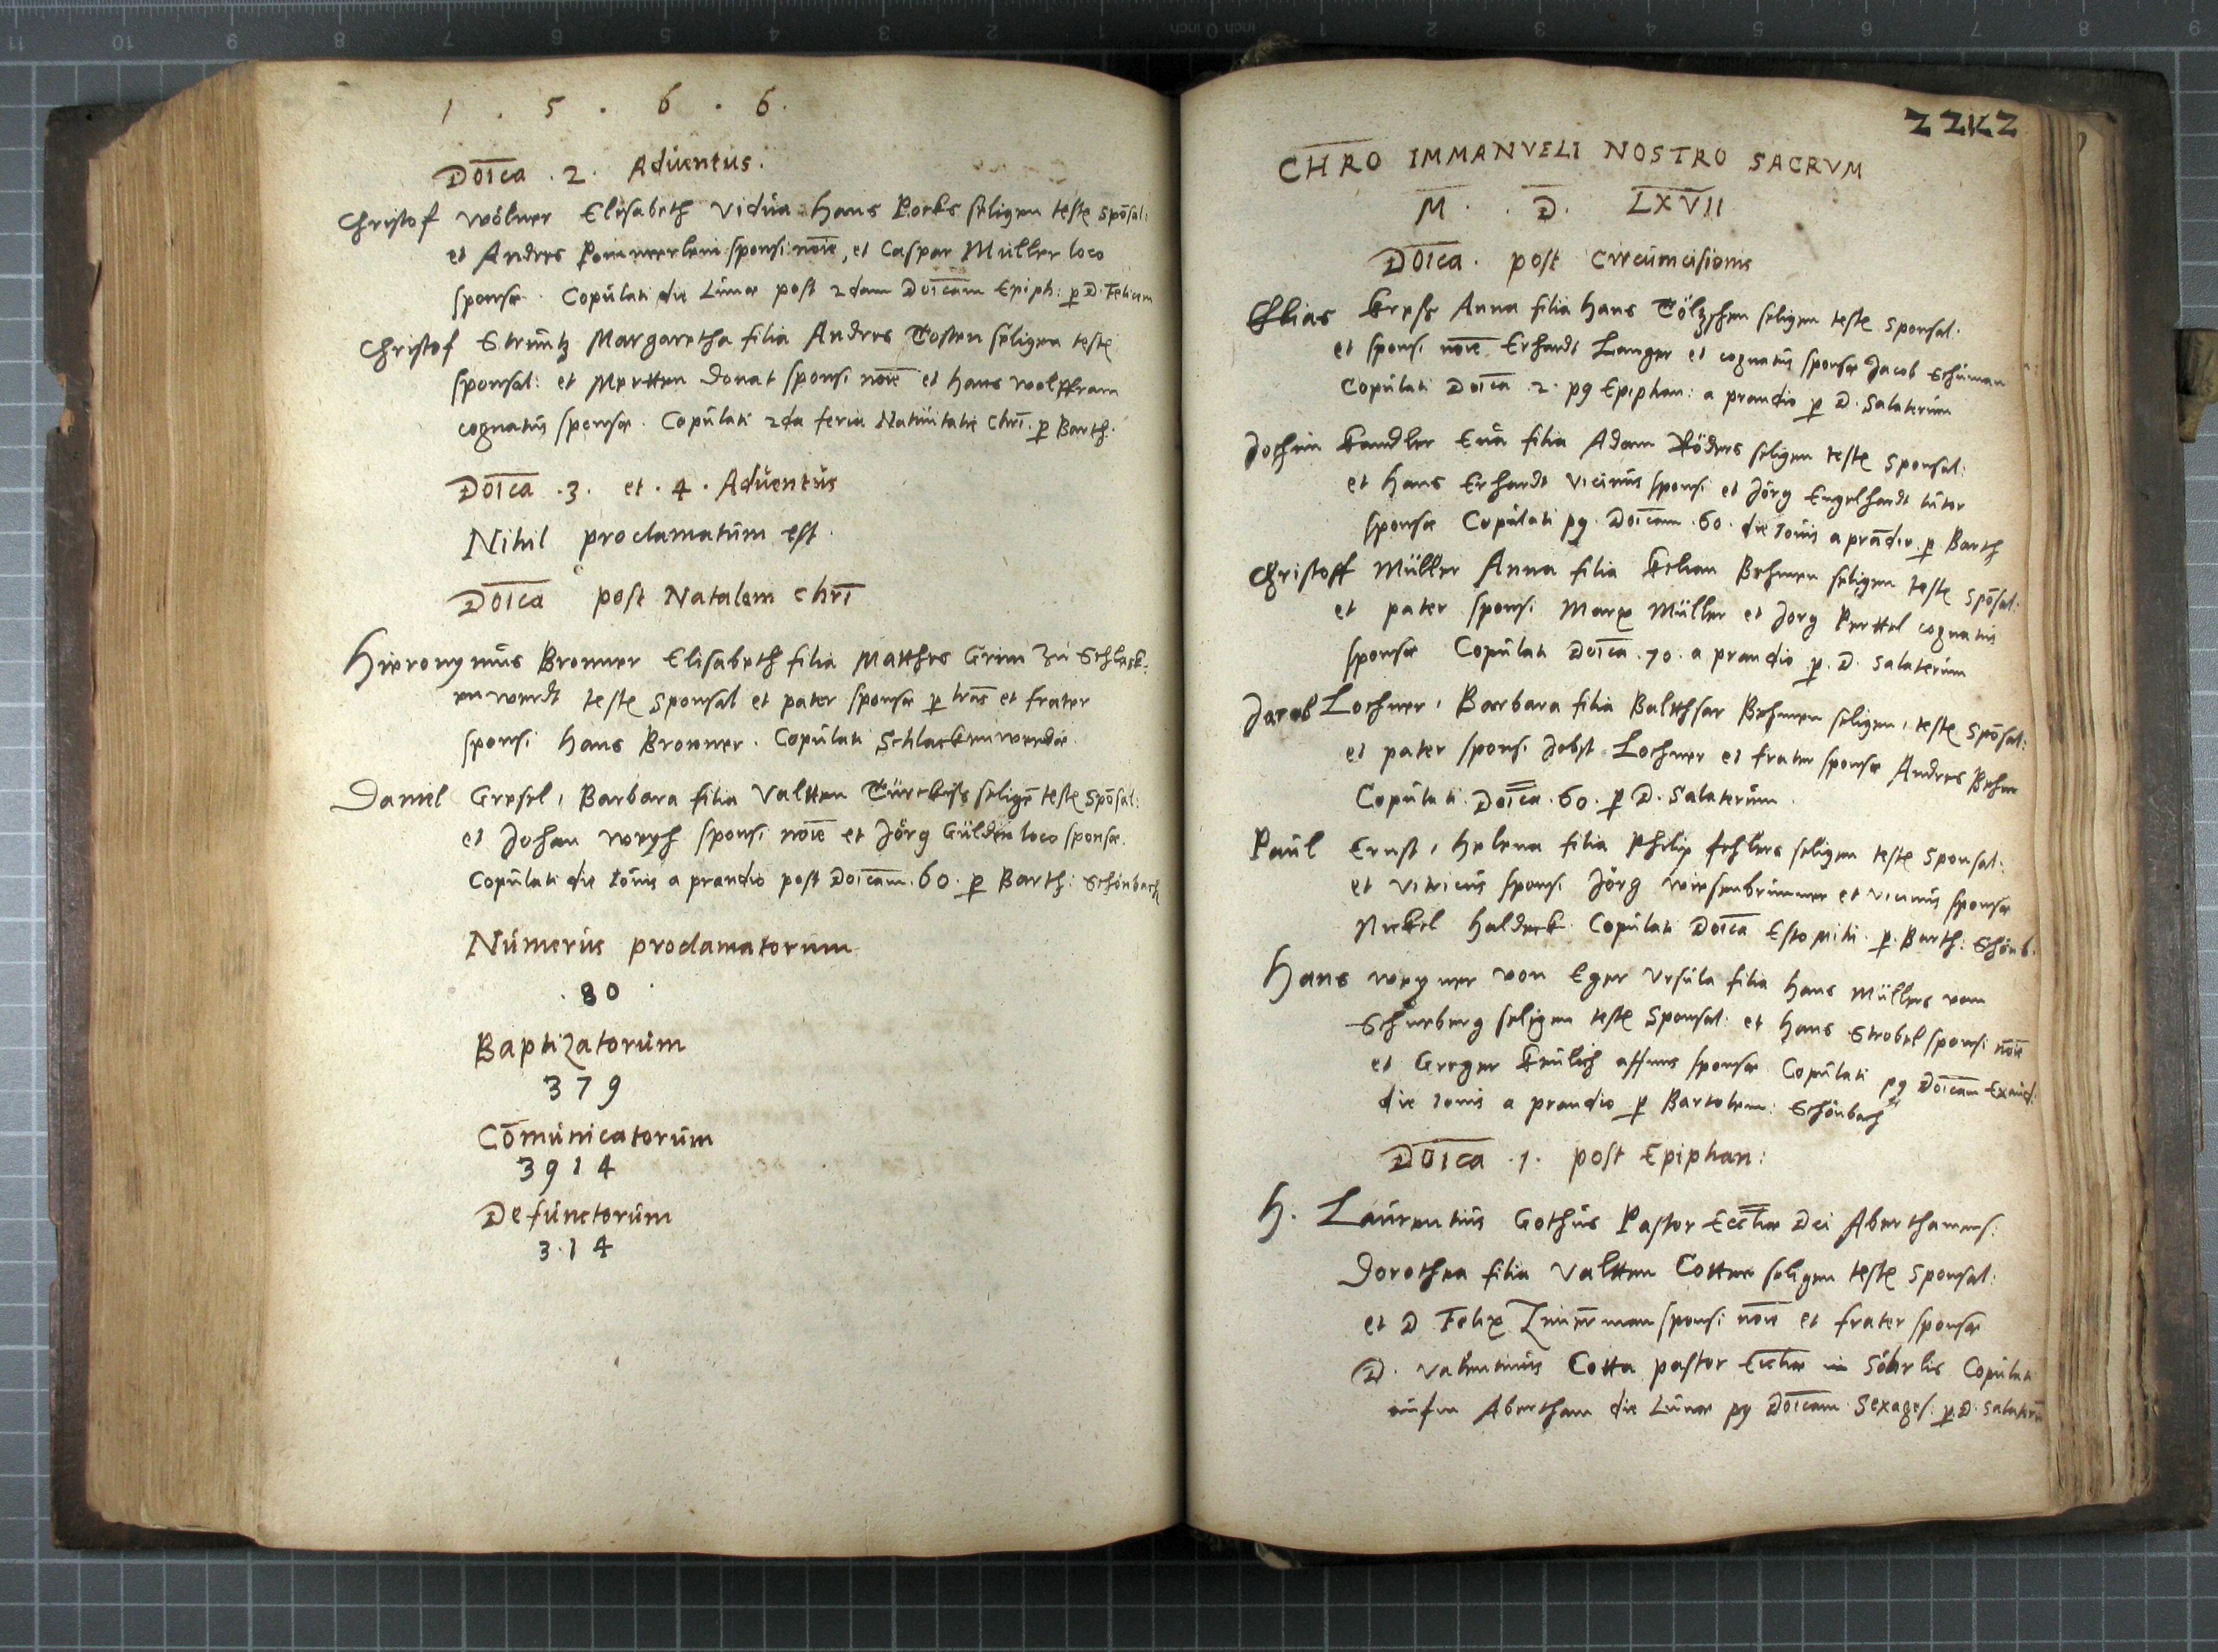 1 . 5 . 6 . 6.
Doīca . 2 . Aduentus.
Christof Wölner Elisabeth Vidua Hans Pocks seligen teste Spōsal:
et Andres Pommerlein sponsi noīe, et Caspar Müller loco
sponsæ. Copulati die Lunæ post 2dam Doīcam Epiph: p D. Felicem
Christof Strüntz Margaretha filia Andres Tosten seligen teste
sponsal: et Mertten Donat sponsi noīe et Hans Wolffram
cognatus sponsæ. Copulati 2da feria Natiuitatis Chrī. p Barth.
Doīca . 3 . et . 4 . Aduentus
Nihil proclamatum est.
Doīca post Natalem Chrī
Hieronymus Bronner Elisabeth filia Matthes Grim zu Schlack-
enwerdt teste Sponsal et pater sponsæ p lrās et frater
sponsi Hans Bronner. Copulati Schlackenwerdæ.
Daniel Gresel, Barbara filia Valtten Türckiss seligē teste Spōsal:
et Johan Weyh sponsi noīe et Jörg Gülden loco sponsæ.
Copulati die Iouis a prandio post Doīcam. 60. p Barth: Schönbach
Numerus proclamatorum
. 80 .
Baptizatorum
379
Cōmunicatorum
3914
Defunctorum
3.14
22K2
CHRO IMMANVELI NOSTRO SACRVM
M . D . LXVII
Doīca . post Circumcisionis
Elias Kress Anna filia Hans Töltzschen seligen teste Sponsal.
et sponsi noīe Erhardt Langer et cognatus sponsæ Jacob Schuman
Copulati Doīca . 2 . pꝯ Epiphan: a prandio p D. Salaterum
Jochim Kandler Eua filia Adam Röders seligen teste Sponsal:
et Hans Erhardt vicinus sponsi et Jörg Engelhardt tutor
sponsæ Copulati pꝯ. Doīcam . 60. die Iouis a prādio. p Barth
Christoff Müller Anna filia Kelian Behmen seligen teste Spōsal:
et pater sponsi Marx Müller et Jorg Perttel cognatus
sponsæ Copulati Doīca . 70. a prandio p. D. Salaterum
Jacob Lochner, Barbara filia Baltthsar Behmen seligen, teste Spōsal:
et pater sponsi Jobst Lochner et frater sponsæ Andres Behm
Copulati Doīca . 60. p D. Salaterum.
Paul Ernst, Helena filia Philip fehlers seligen teste Sponsal:
et vitricus sponsi Jörg Wiesenbrunner et vicinus sponsæ
Nickel Haldeck Copulati Doīca Esto mihi p. Barth: Schönb.
Hans Weyner von Eger Vrsula filia Hans Müllers vom
Schneberg seligen teste Sponsal: et Hans Strobel sponsi noīe
et Greger Keulich affinis sponsæ Copulati pꝯ Doīcam Exaud:
die Iouis a prandio p Bartolem: Schönbach
Doīca . 1 . post Epiphan:
H. Laurentius Gothus Pastor Ecclīæ Dei Aberthamens:
Dorothea filia Valtten Cotten seligen teste Sponsal:
et D Felix Zimerman sponsi noīe et frater sponsæ
D. Valentinus Cotta pastor Ecclīæ in Copulati
Abertham die Lunæ pꝯ Doīcam Sexages: p. D. Salaterū